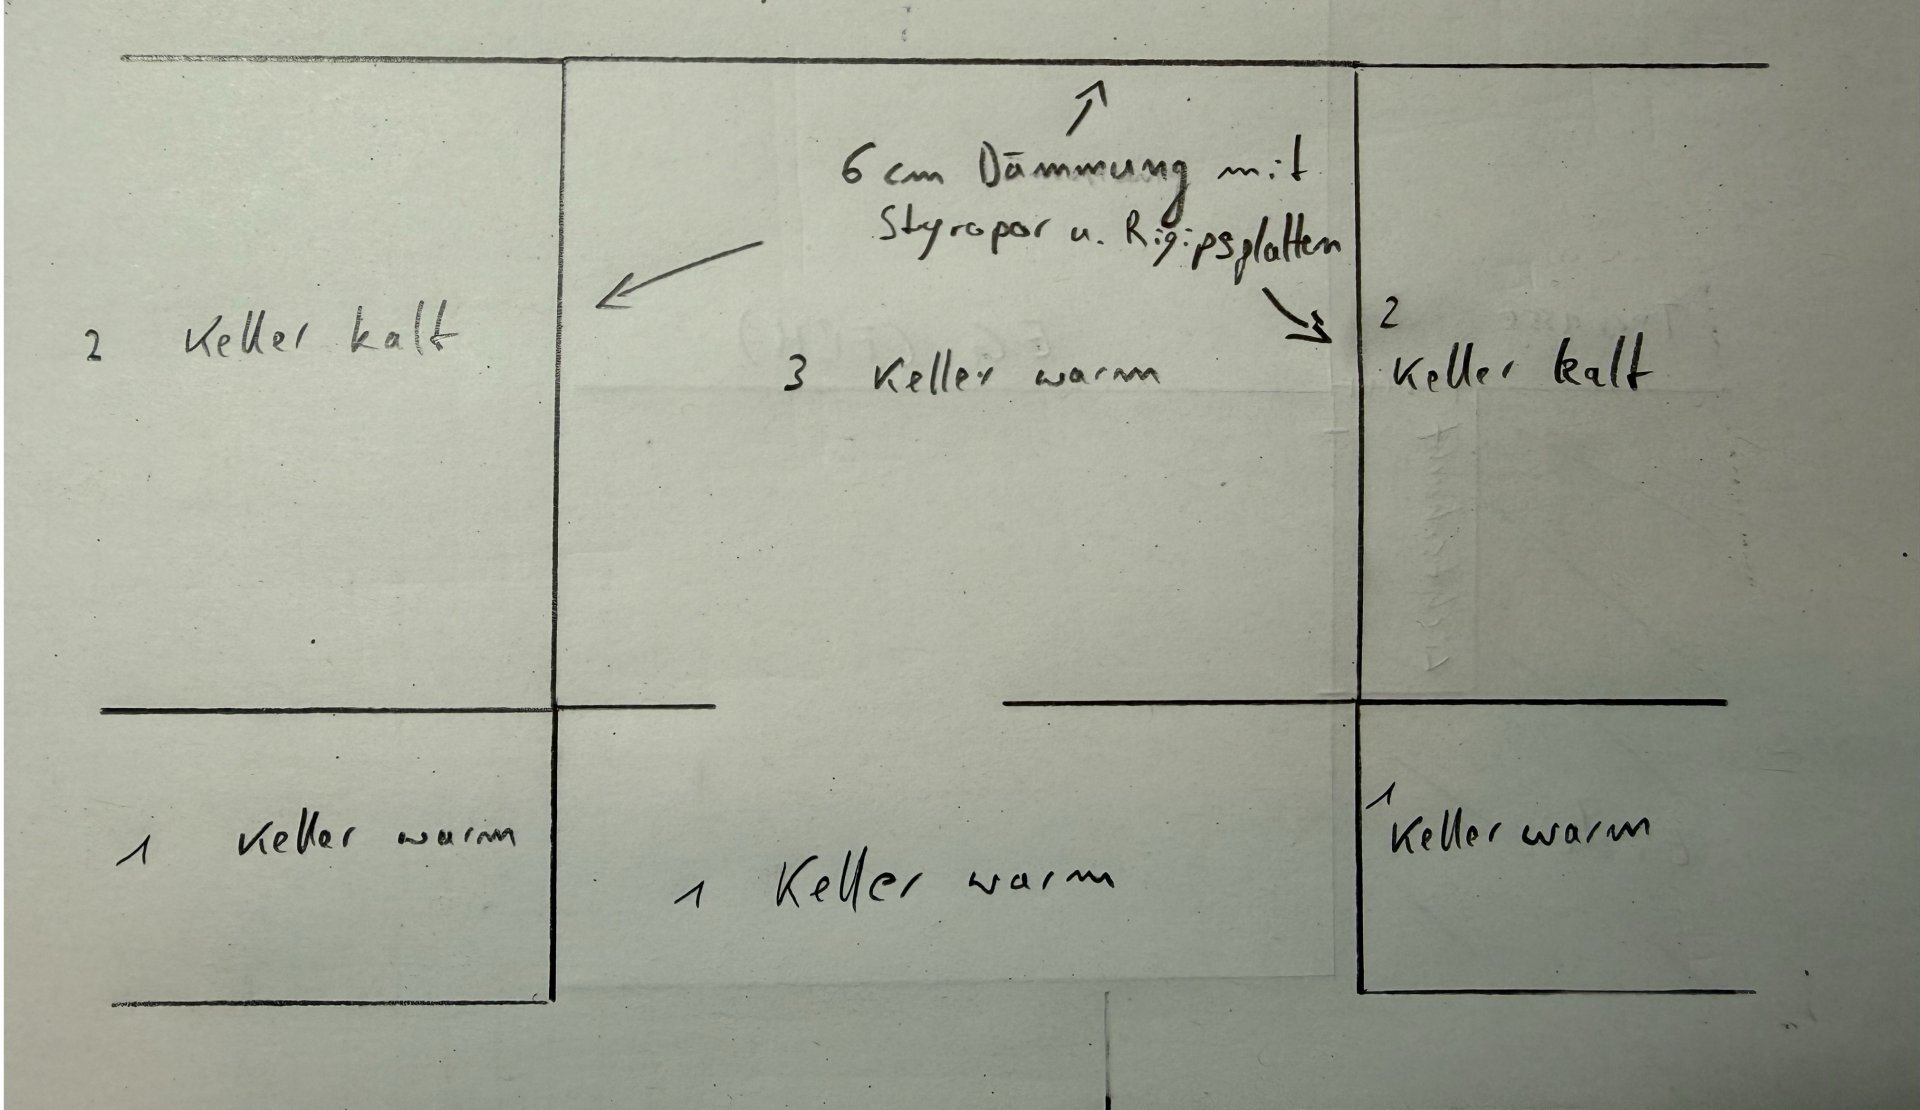 6 cm Dämmung mit
Styropor u. Rigipsplatten
2 Keller kalt
3 Keller warm
2
Keller kalt
1 Keller warm
1 Keller warm
1
Keller warm